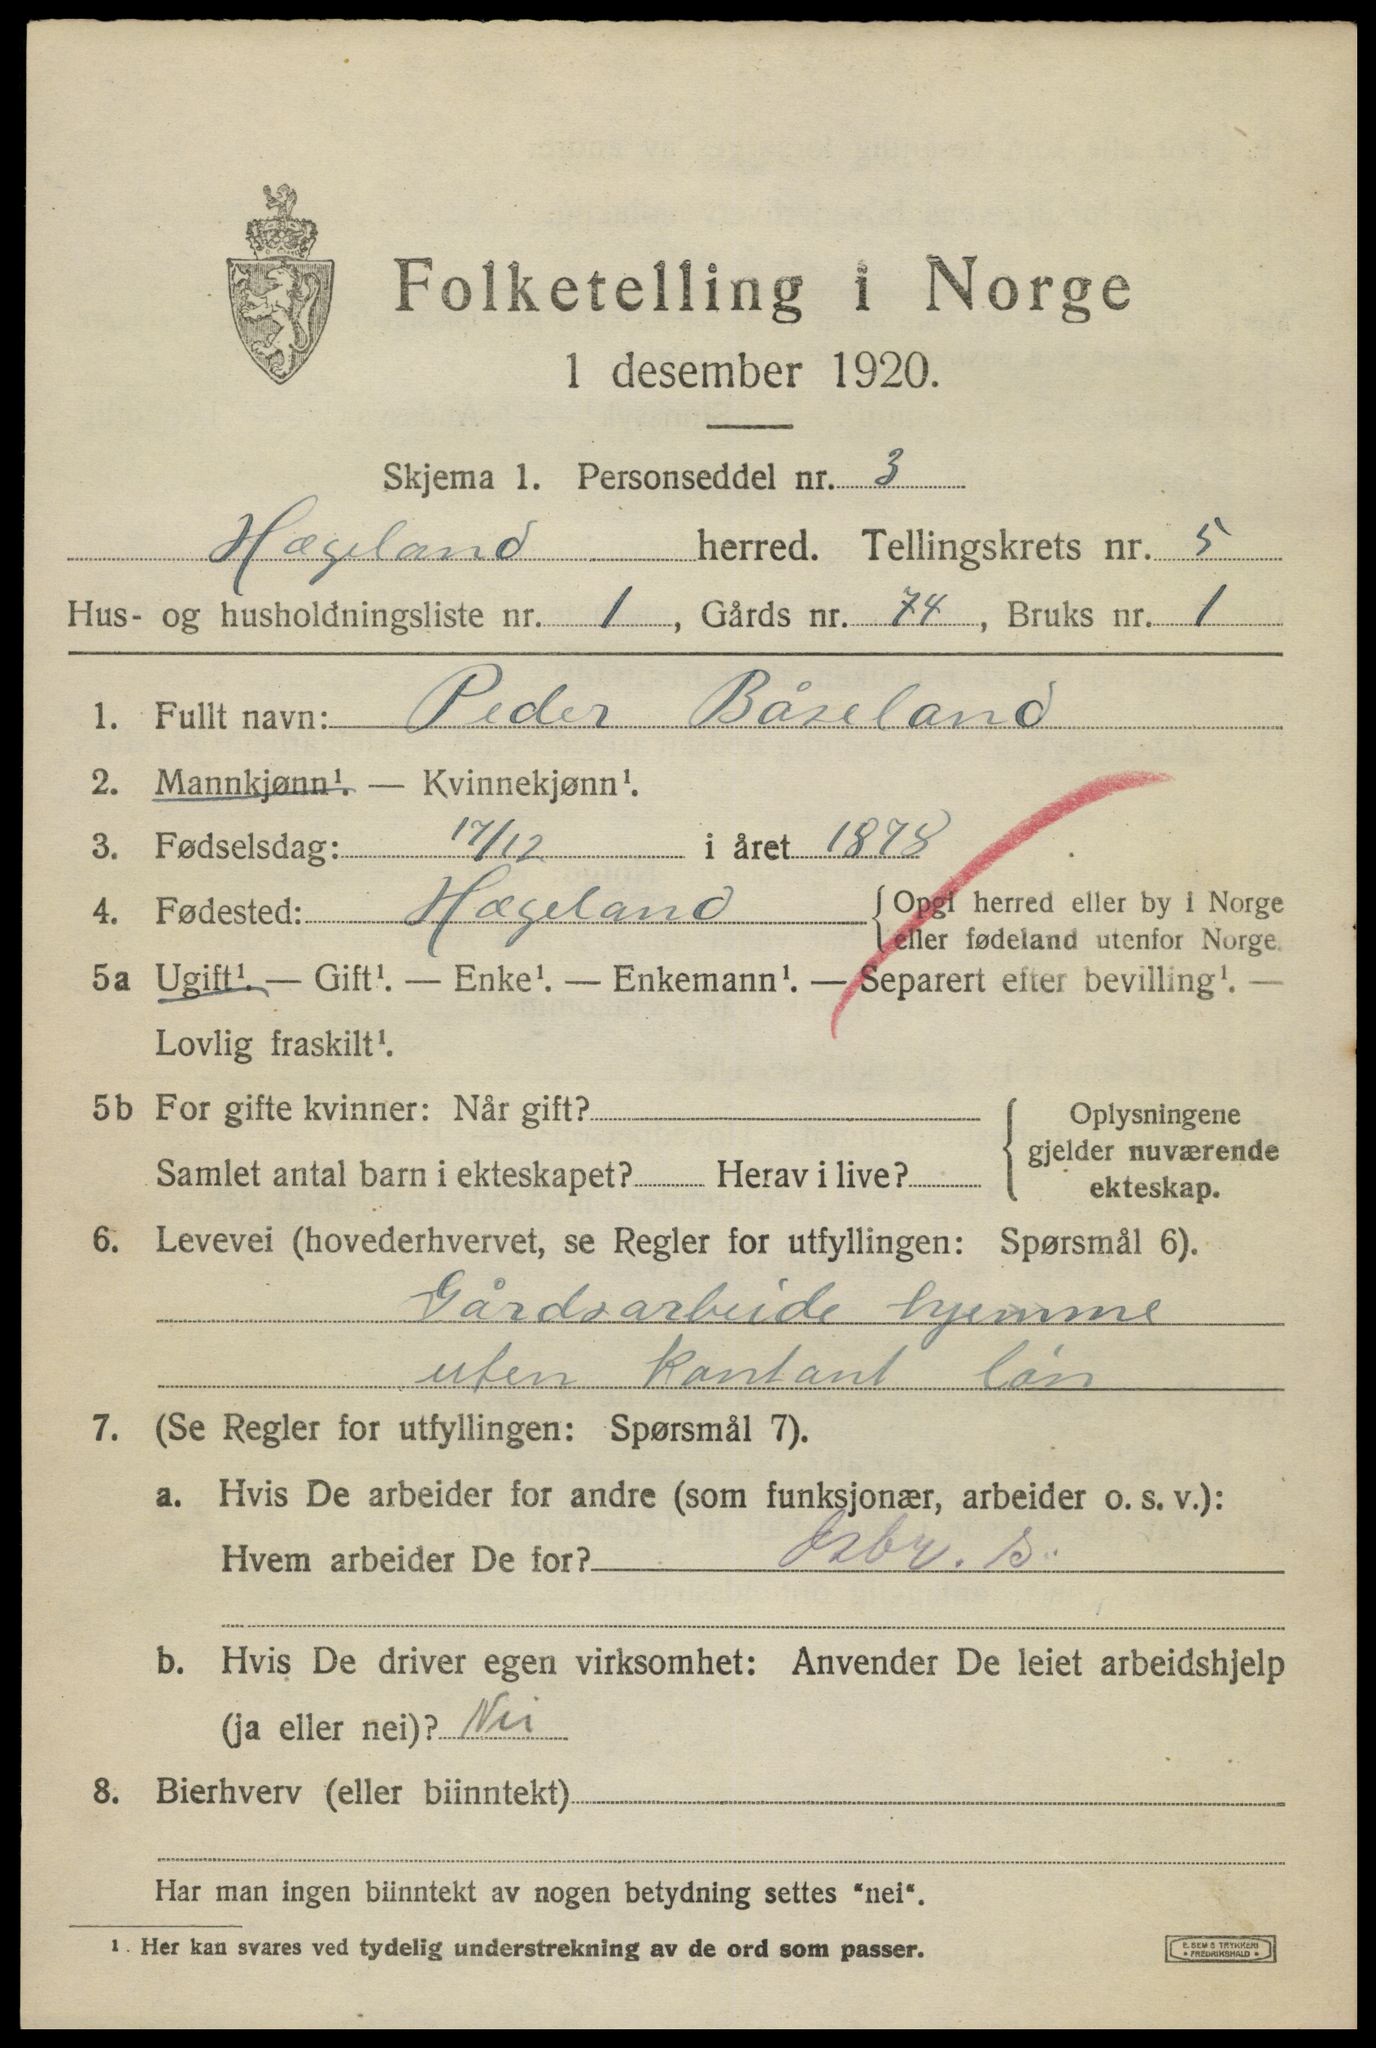 Folketelling i Norge
1 desember 1920.
Skjema 1. Personseddel nr. 3
Hægeland herred. Tellingskrets nr. 5
Hus- og husholdningsliste nr. 1, Gårds nr. 74, Bruks nr. 1
1. Fullt navn: Peder Båseland
2. Mannkjønn¹. — Kvinnekjønn¹.
3. Fødselsdag: 17/12 i året 1878
4. Fødested: Hægeland {Opgi herred eller by i Norge
eller fødeland utenfor Norge.
5a Ugift¹. — Gift¹. — Enke¹. — Enkemann¹. — Separert efter bevilling¹. —
Lovlig fraskilt¹.
5b For gifte kvinner: Når gift?
Samlet antal barn i ekteskapet? Herav i live?
Oplysningene
gjelder nuværende
ekteskap.
6. Levevei (hovederhvervet, se Regler for utfyllingen: Spørsmål 6).
Gårdsarbeide hjemme
uten kontant løn
7. (Se Regler for utfyllingen: Spørsmål 7).
a. Hvis De arbeider for andre (som funksjonær, arbeider o. s. v.):
Hvem arbeider De for?
b. Hvis De driver egen virksomhet: Anvender De leiet arbeidshjelp
(ja eller nei)? Nei
8. Bierhverv (eller biinntekt)
Har man ingen biinntekt av nogen betydning settes "nei".
¹. Her kan svares ved tydelig understrekning av de ord som passer.
E. SEM S TRYKKERI
FREDRIKSHALD